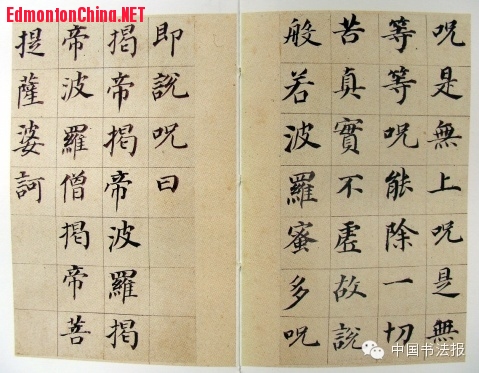 EdmontonChina.NET
呪是無上呪是無
等等呪能除一切
苦真實不虛故說
般若波羅蜜多呪
即說呪曰
揭帝揭帝波羅揭
帝波羅僧揭帝菩
提薩婆訶
中国书法报